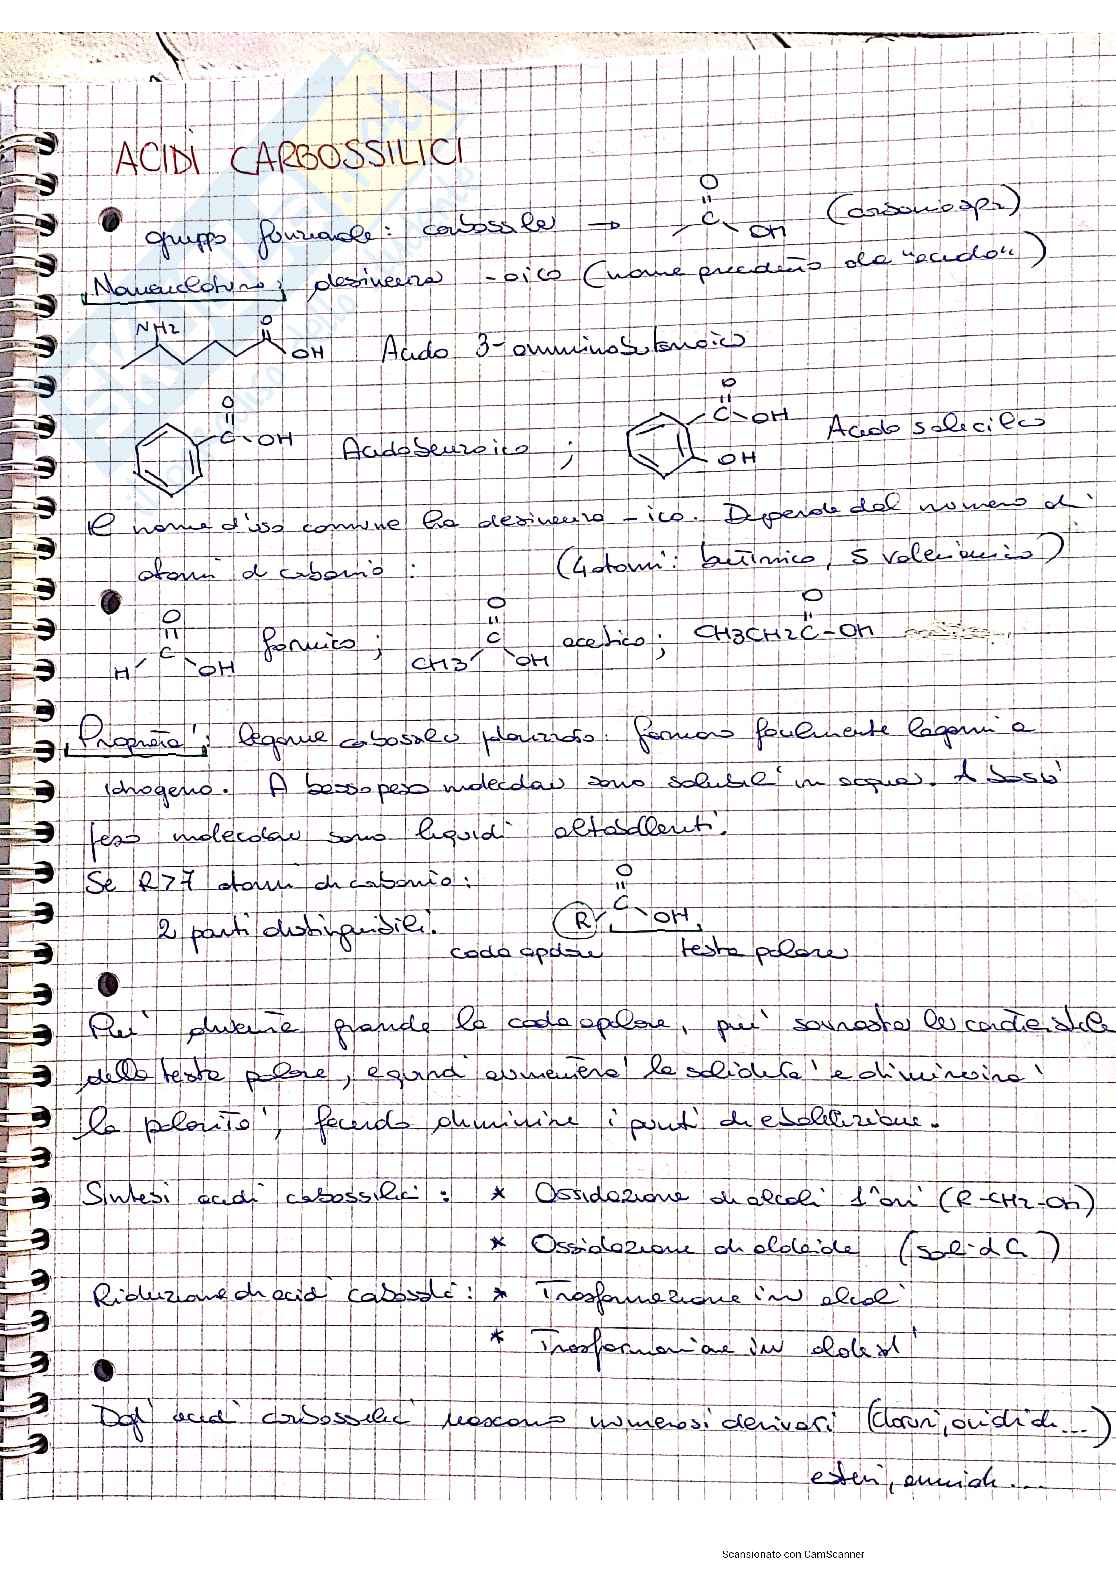 ACIDI CARBOSSILICI
gruppo funzionale: carbossile → O C OH (carbonio sp2)
Nomenclatura: desinenza -oico (nome preceduto da "acido")
NH2 O OH Acido 3-amminobutanoico
O C-OH Acido benzoico ; O C-OH OH Acido salicilico
Il nome d'uso comune ha desinenza -ico. Dipende dal numero di
atomi di carbonio: (4 atomi: butirrico, 5 valerianico)
O H C OH formico; O CH3 C OH acetico; O CH3CH2C-OH
Proprietà: legame carbossilico polarizzato. formano facilmente legami a
idrogeno. A basso peso molecolare sono solubili in acqua. A basso
peso molecolare sono liquidi altobollenti.
Se R>7 atomi di carbonio:
2 parti distinguibili. R O C OH
coda apolare testa polare
Più diventa grande la coda apolare, più sovrasta le caratteristiche
della testa polare, e quindi aumenterà la solidità e diminuirà
la polarità, facendo diminuire i punti di ebollizione.
Sintesi acidi carbossilici: * Ossidazione di alcoli 1°ari (R-CH2-OH)
* Ossidazione di aldeide
Riduzione di acidi carbossilici: * Trasformazione in alcoli
* Trasformazione in aldeidi
Dagli acidi carbossilici nascono numerosi derivati (cloruri, anidridi...)
esteri, ammidi...
Scansionato con CamScanner